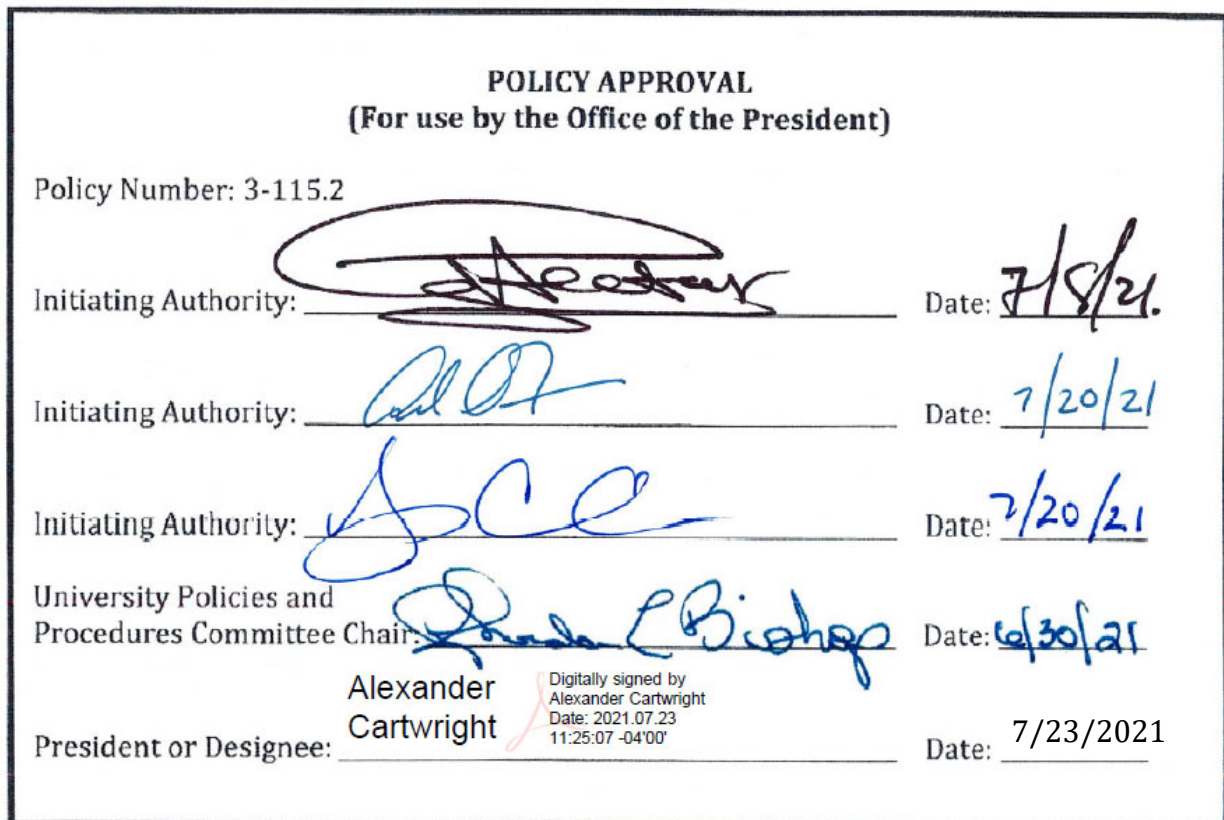 POLICY APPROVAL
(For use by the Office of the President)
Policy Number: 3-115.2
Initiating Authority: Date: 7/8/21.
Initiating Authority: Date: 7/20/21
Initiating Authority: Date: 7/20/21
University Policies and
Procedures Committee Chair: Rhonda L Bishop Date: 6/30/21
Alexander
Cartwright
Digitally signed by
Alexander Cartwright
Date: 2021.07.23
11:25:07 -04'00'
President or Designee: Date: 7/23/2021